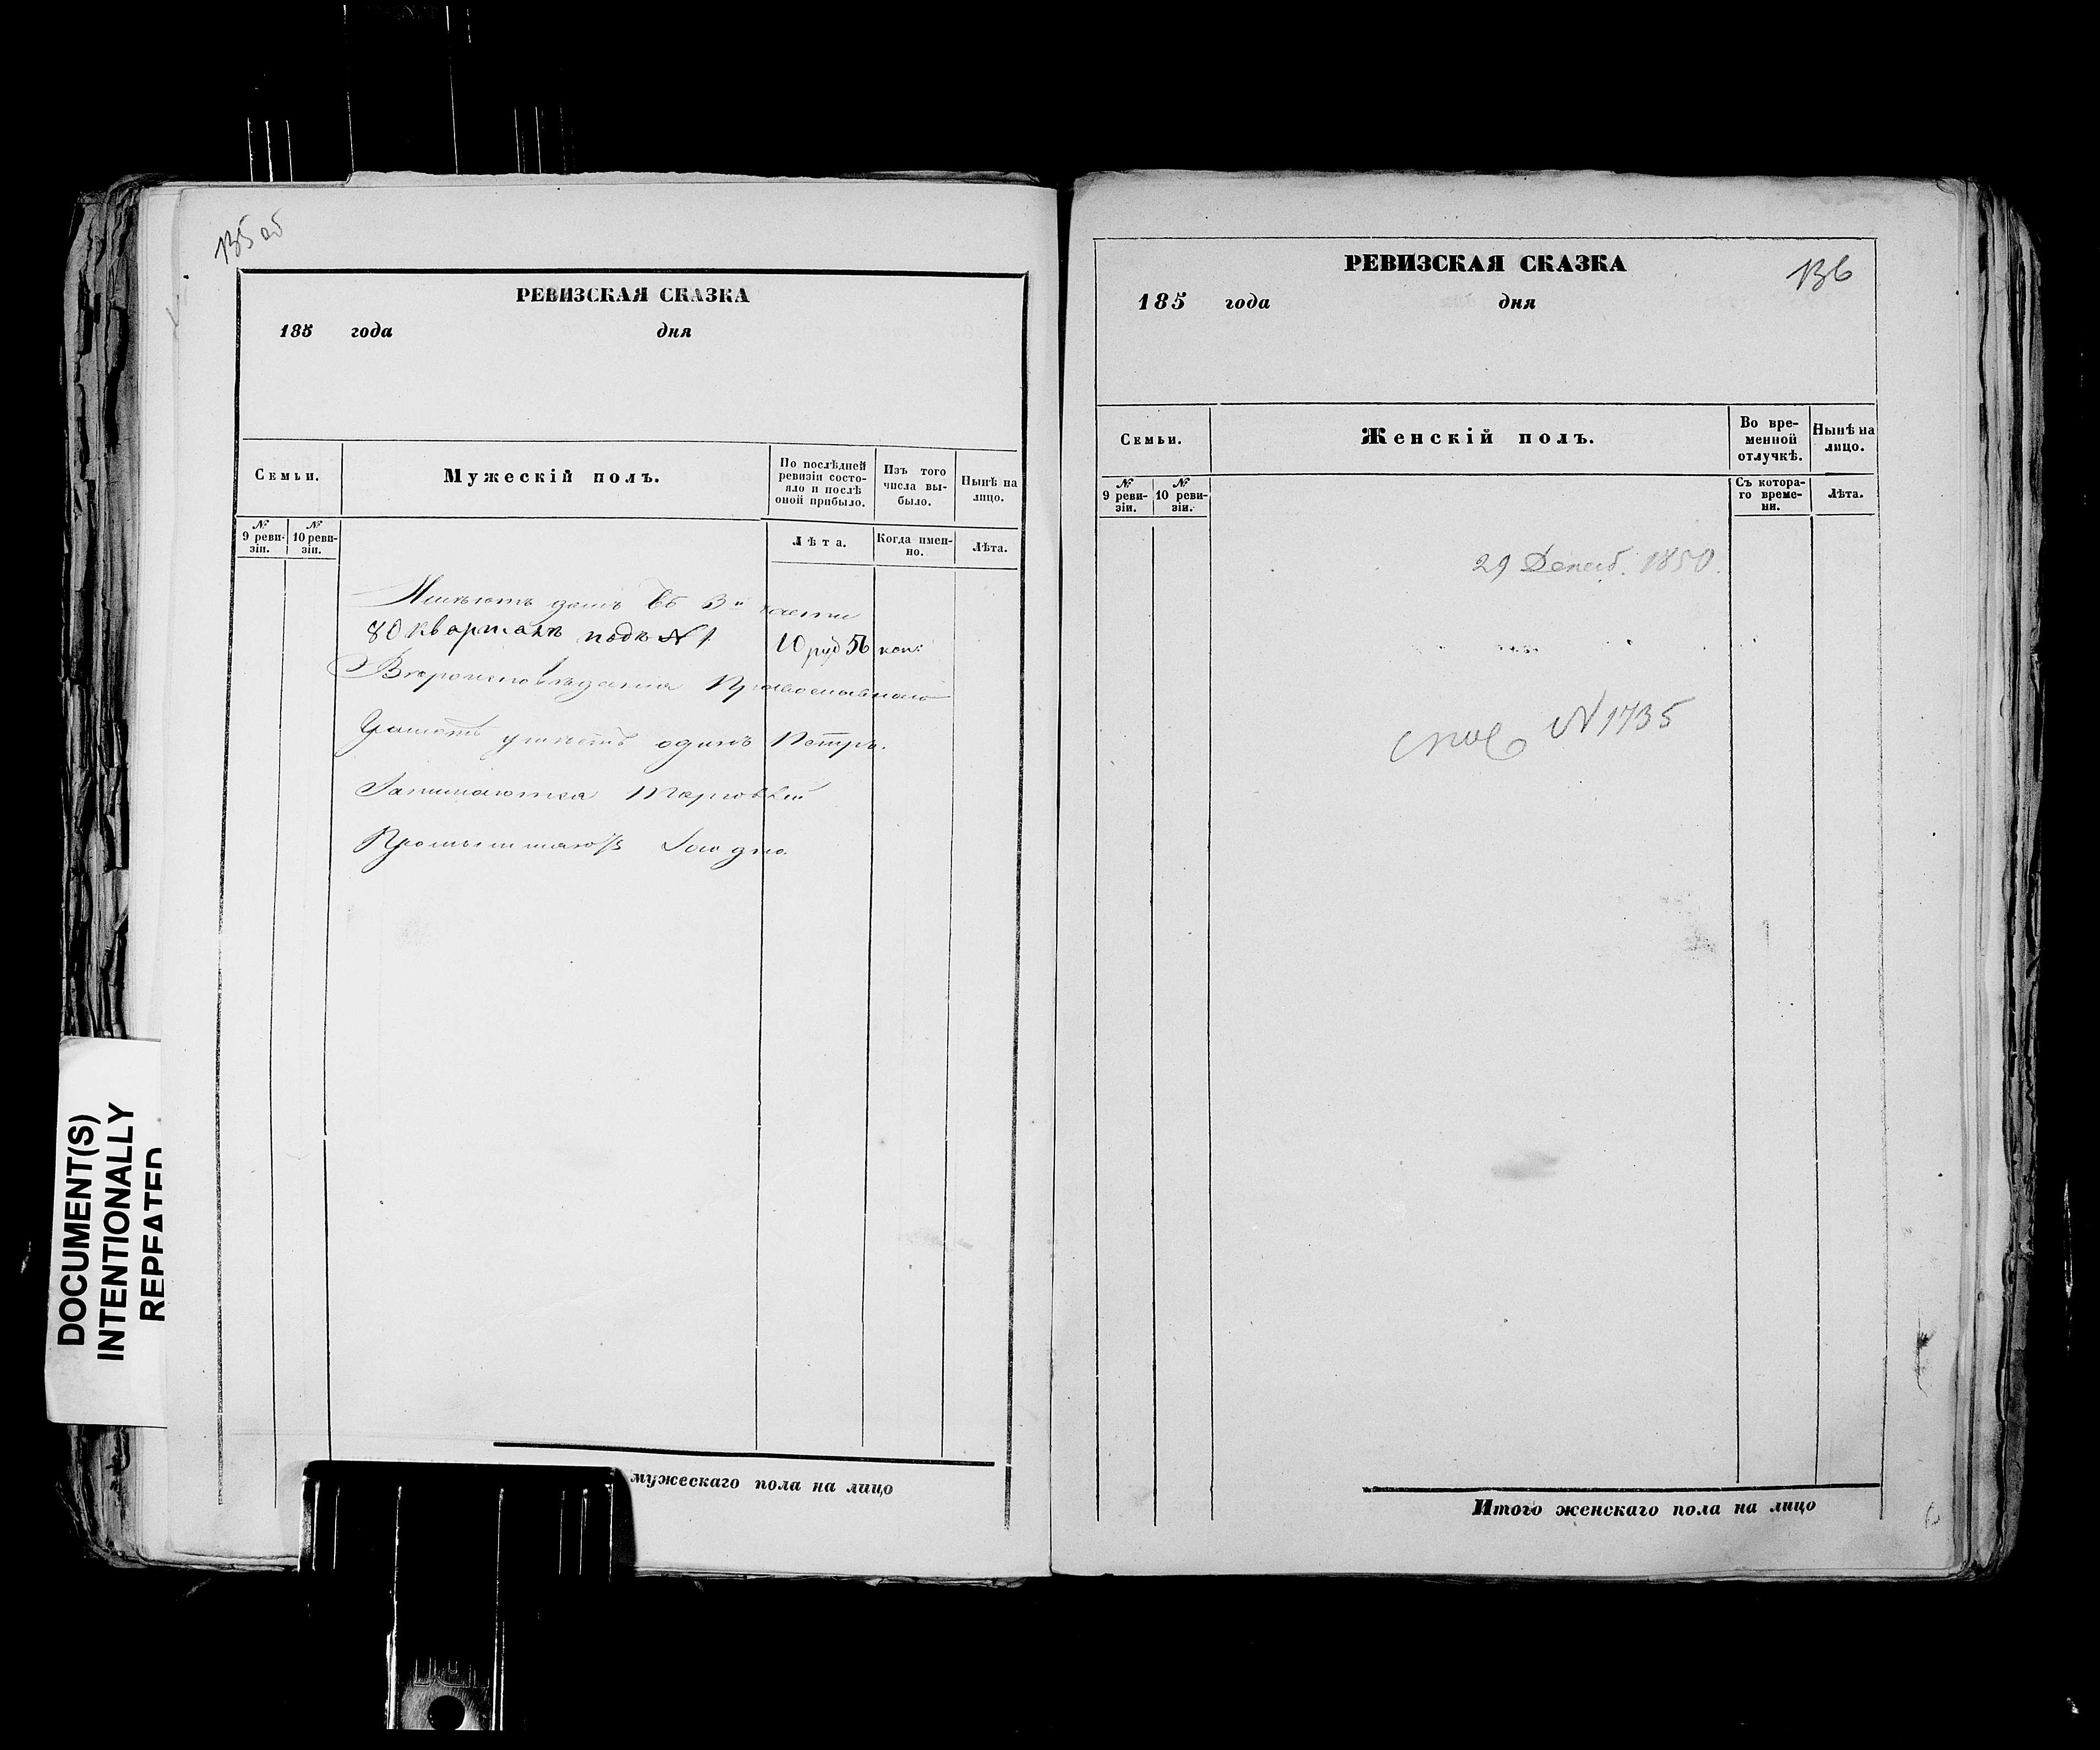 135 об
РЕВИЗСКАЯ СКАЗКА
185 года дня
Семьи.
Мужескій полъ.
По послѣдней
ревизіи состо-
яло и послѣ
оной прибыло.
Изъ того
числа вы-
было.
Нынѣ на
лицо.
№
9 реви-
зіи.
№
10 реви-
зіи.
Лѣта.
Когда имен-
но.
Лѣта.
Имѣютъ домъ въ 3й части
80 кварталѣ подъ № 1. 10 руб 56 коп:
Вѣроисповѣданія Православнаго
Грамотѣ умѣетъ одинъ Петръ.
Занимаются Торговлей
мужескаго пола на лицо
136
РЕВИЗСКАЯ СКАЗКА
185 года дня
Семьи.
Женскій полъ.
Во вре-
менной
отлучкѣ.
Нынѣ на
лицо.
№
9 реви-
зіи.
№
10 реви-
зіи.
Съ котора-
го време-
ни.
Лѣта.
29 Декаб. 1850.
№ 1735
Итого женскаго пола на лицо
DOCUMENT(S)
INTENTIONALLY
REPEATED